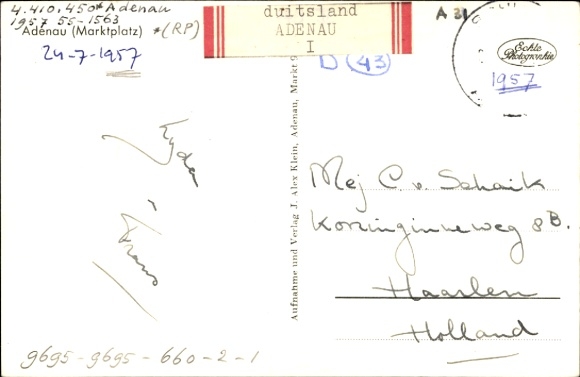 4.410.450* Adenau
1957 55-1563
Adenau (Marktplatz) *(RP)
24-7-1957
duitsland
ADENAU
I
D 43
A 31
Echte
Photographie
1957
Frans
Aufnahme und Verlag J. Alex Klein, Adenau, Markt 9
Mej C. v. Schaik
Korzinginneweg 8B.
Haarlem
Holland
9695-9695-660-2-1